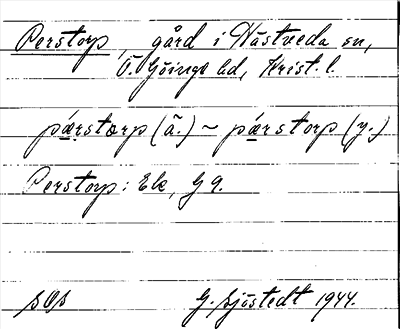 Perstorp, gård i Nästveda sn,
Ö. Göinge hd, Krist. l.
pærstorp (ä.) ~ pærstorp (y.)
Perstorp: Ek, G 9.
SOS
G. Sjöstedt 1944.